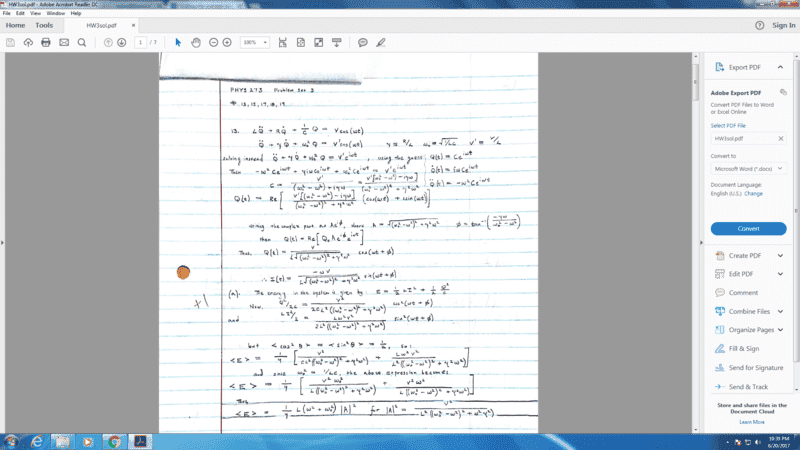 HW3sol.pdf - Adobe Acrobat Reader DC
File Edit View Window Help
Home Tools HW3sol.pdf × Sign In
1 / 7 100%
PHYS 273 Problem Set 3
# 13, 15, 17, 18, 19
13. LQ̈ + RQ̇ + 1/C Q = V cos(ωt)
Q̈ + γQ̇ + ω₀² Q = V' cos(ωt) γ = R/L ω₀ = √1/LC V' = V/L
solving instead Q̈ + γQ̇ + ω₀² Q = V' e^iωt, using the guess Q(t) = Ce^iωt
Then -ω² Ce^iωt + γiωCe^iωt + ω₀² Ce^iωt = V' e^iωt Q̇(t) = iωCe^iωt
C = V' / (ω₀² - ω²) + iγω = V'[(ω₀² - ω²) - iγω] / (ω₀² - ω²)² + γ²ω² Q̈(t) = -ω² Ce^iωt
Q(t) = Re[ V'[(ω₀² - ω²) - iγω] / (ω₀² - ω²)² + γ²ω² (cos(ωt) + i sin(ωt)) ]
writing the complex part as Ae^iφ, where A = √(ω₀² - ω²)² + γ²ω² φ = tan⁻¹( -γω / ω₀² - ω² )
then Q(t) = Re[ Q₀ A e^iφ e^iωt ]
Thus, Q(t) = V / L√(ω₀² - ω²)² + γ²ω² cos(ωt + φ)
∴ I(t) = -ωV / L√(ω₀² - ω²)² + γ²ω² sin(ωt + φ)
+1
(a). The energy in the system is given by E = 1/2 LI² + 1/2 Q²/C
Now, Q²/2C = V² / 2CL²((ω₀² - ω²)² + γ²ω²) cos²(ωt + φ)
and LI²/2 = Lω²V² / 2L²((ω₀² - ω²)² + γ²ω²) sin²(ωt + φ)
but <cos² θ> = <sin² θ> = 1/2, so:
<E> = 1/4 [ V² / CL²((ω₀² - ω²)² + γ²ω²) + Lω²V² / L²((ω₀² - ω²)² + γ²ω²) ]
and since ω₀² = 1/LC, the above expression becomes
<E> = 1/4 [ V² ω₀² / L((ω₀² - ω²)² + γ²ω²) + V² ω² / L((ω₀² - ω²)² + γ²ω²) ]
Thus
<E> = 1/4 L(ω² + ω₀²) |A|² for |A|² = V² / L²((ω₀² - ω²)² + ω²γ²)
Export PDF
Adobe Export PDF
Convert PDF Files to Word
or Excel Online
Select PDF File
HW3sol.pdf ×
Convert to
Microsoft Word (*.docx)
Document Language:
English (U.S.) Change
Convert
Create PDF
Edit PDF
Comment
Combine Files
Organize Pages
Fill & Sign
Send for Signature
Send & Track
Store and share files in the
Document Cloud
Learn More
10:39 PM
6/20/2017